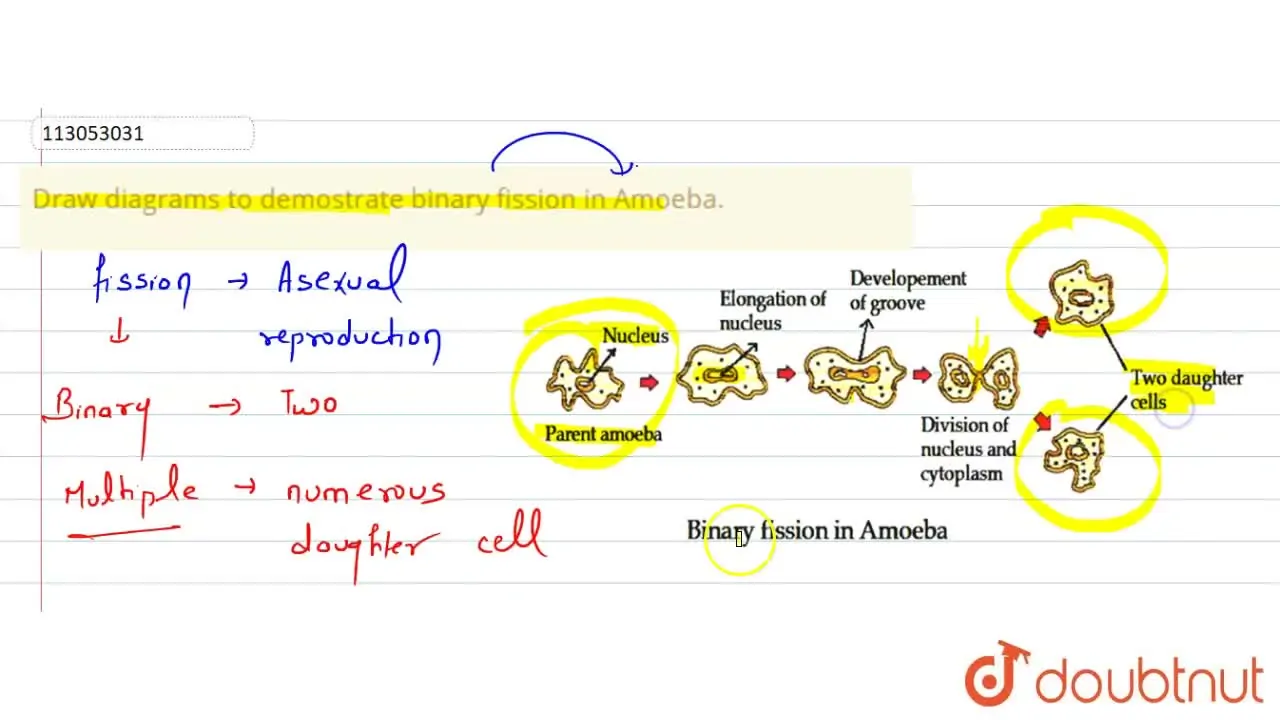 113053031
Draw diagrams to demostrate binary fission in Amoeba.
fission → Asexual
reproduction
↓
Binary → Two
Multiple → numerous
daughter cell
Nucleus
Parent amoeba
Elongation of
nucleus
Developement
of groove
Division of
nucleus and
cytoplasm
Two daughter
cells
Binary fission in Amoeba
doubtnut